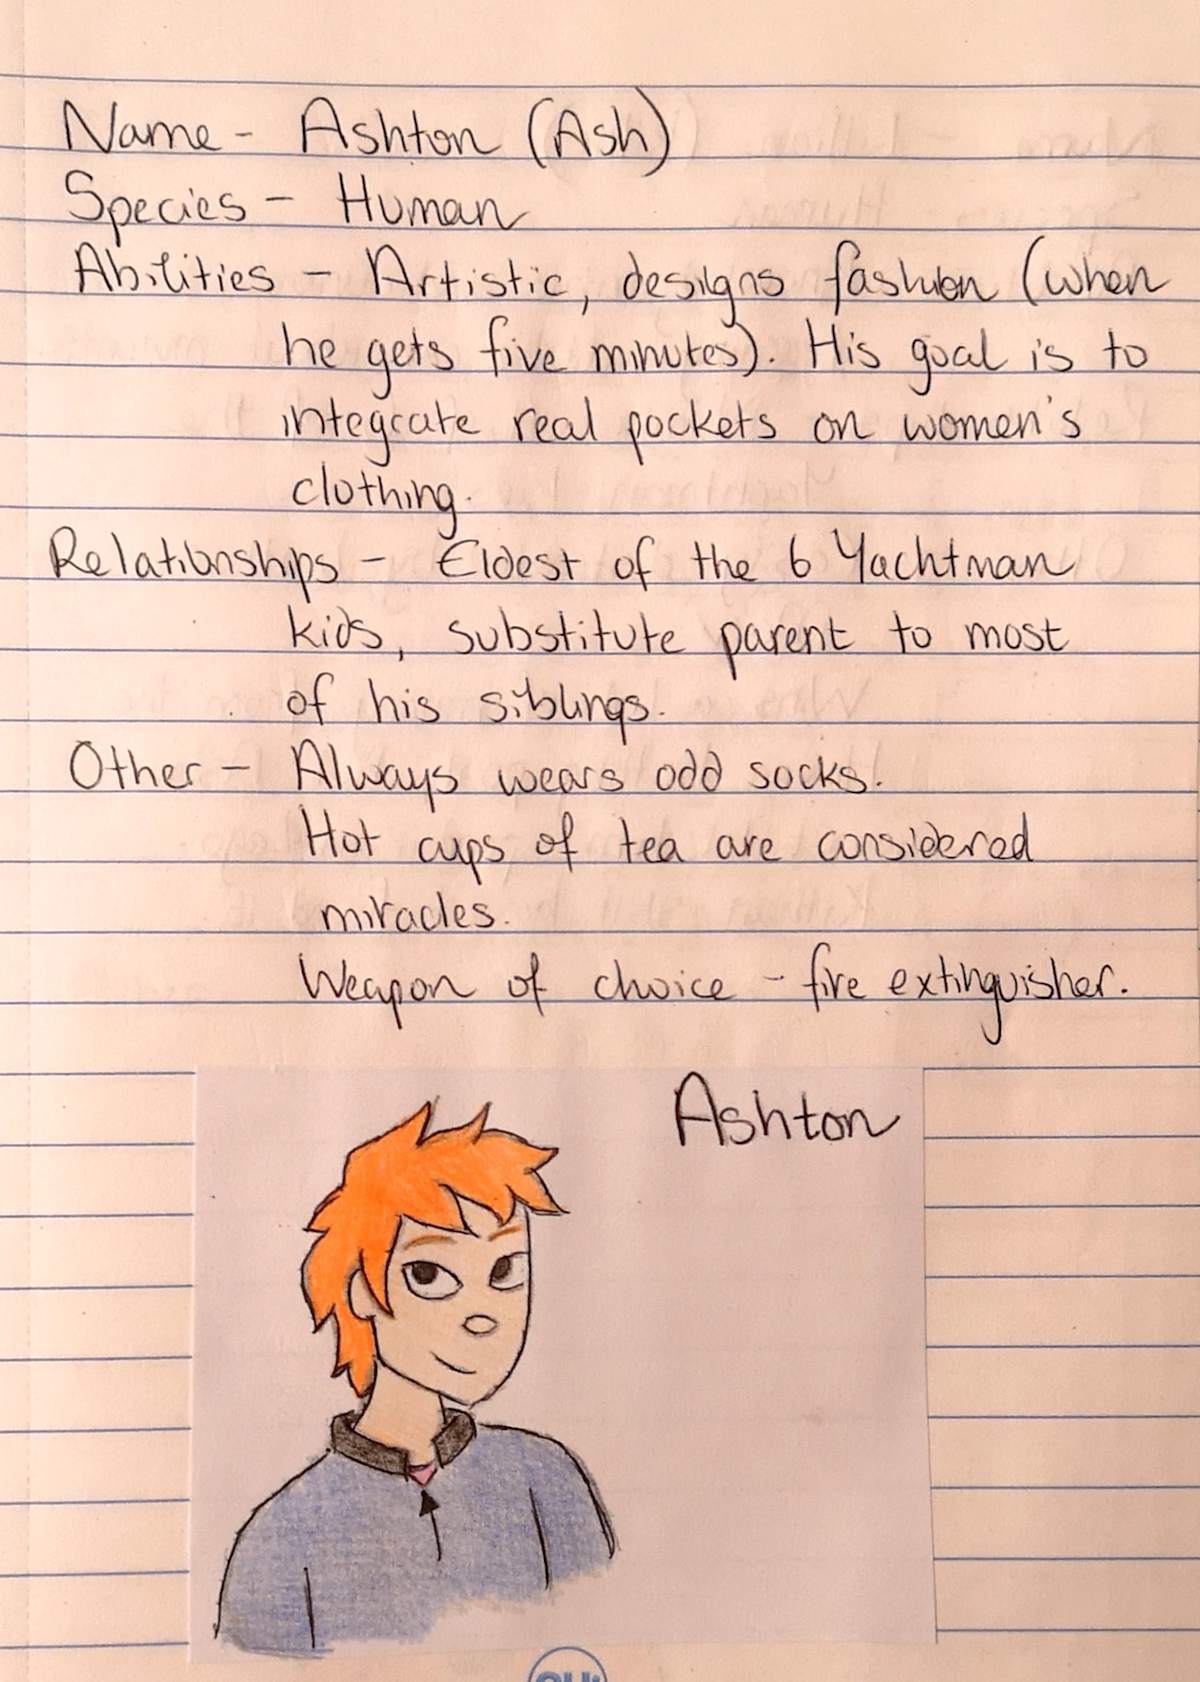 Name - Ashton (Ash)
Species - Human
Abilities - Artistic, designs fashion (when
he gets five minutes). His goal is to
integrate real pockets on women's
clothing.
Relationships - Eldest of the 6 Yachtman
kids, substitute parent to most
of his siblings.
Other - Always wears odd socks.
Hot cups of tea are considered
miracles.
Weapon of choice - fire extinguisher.
Ashton